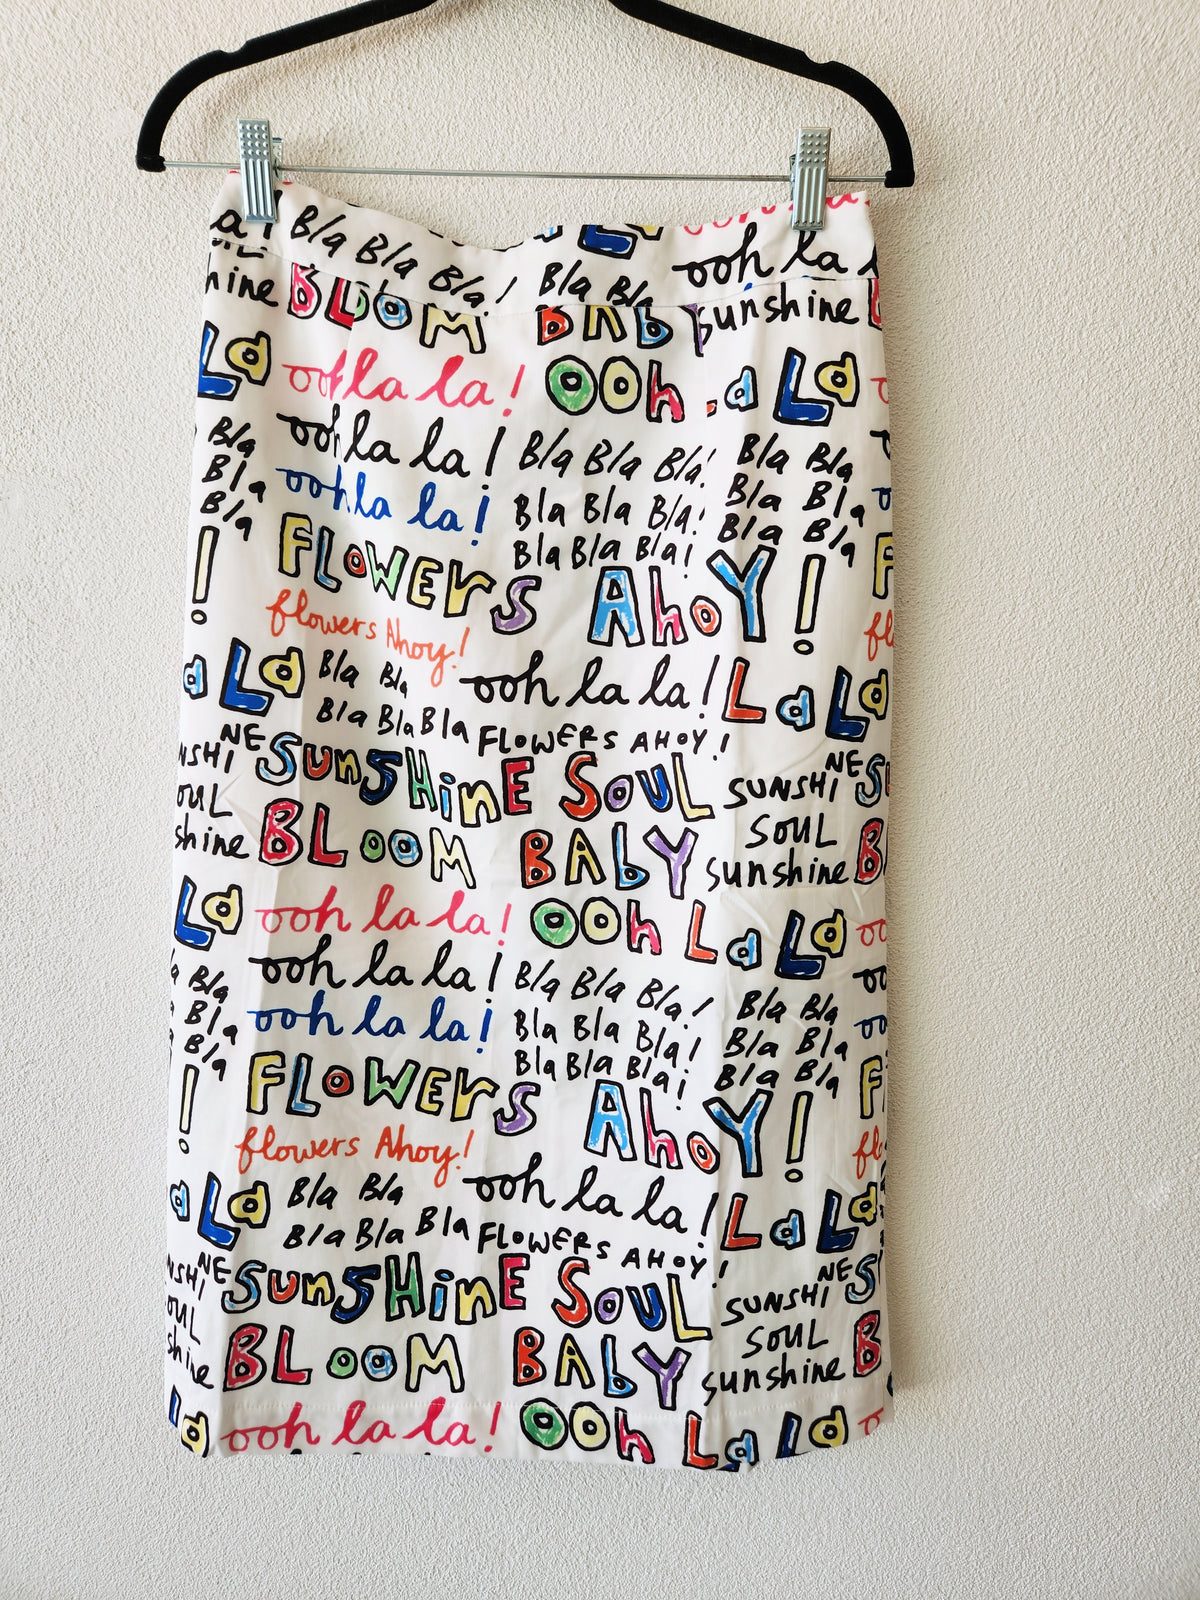 Bla Bla Bla!
Bla Bla
ooh la
BLOOM BABY sunshine
La ooh la la! OOh La
ooh la la! Bla Bla Bla! Bla Bla
Bla
ooh la la! Bla Bla Bla! Bla Bla
Bla
Bla Bla Bla! Bla Bla
Bla
FLOWERS AhoY!
!
flowers Ahoy!
La Bla Bla ooh la la! La La
Bla Bla Bla FLOWERS AHOY!
SunSHinE SOUL SUNSHINE
SOUL
BLOOM BAbY sunshine
La ooh la la! OOh La La
ooh la la! Bla Bla Bla! Bla Bla
Bla
ooh la la! Bla Bla Bla! Bla Bla
Bla
Bla Bla Bla! Bla Bla
Bla
FLOWErS AhoY!
!
flowers Ahoy!
La Bla Bla ooh la la! La La
Bla Bla Bla FLOWERS AHOY!
SunSHinE SOUL SUNSHINE
SOUL
BLOOM BAbY sunshine
ooh la la! OOh La La